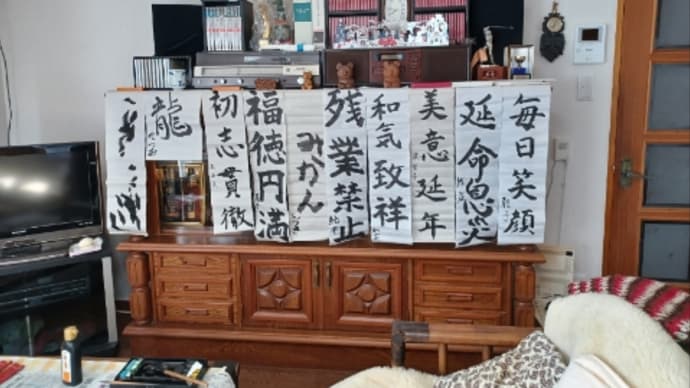 毎日笑顔
延命息災
美意延年
和気致祥
残業禁止
みかん
福徳円満
初志貫徹
龍